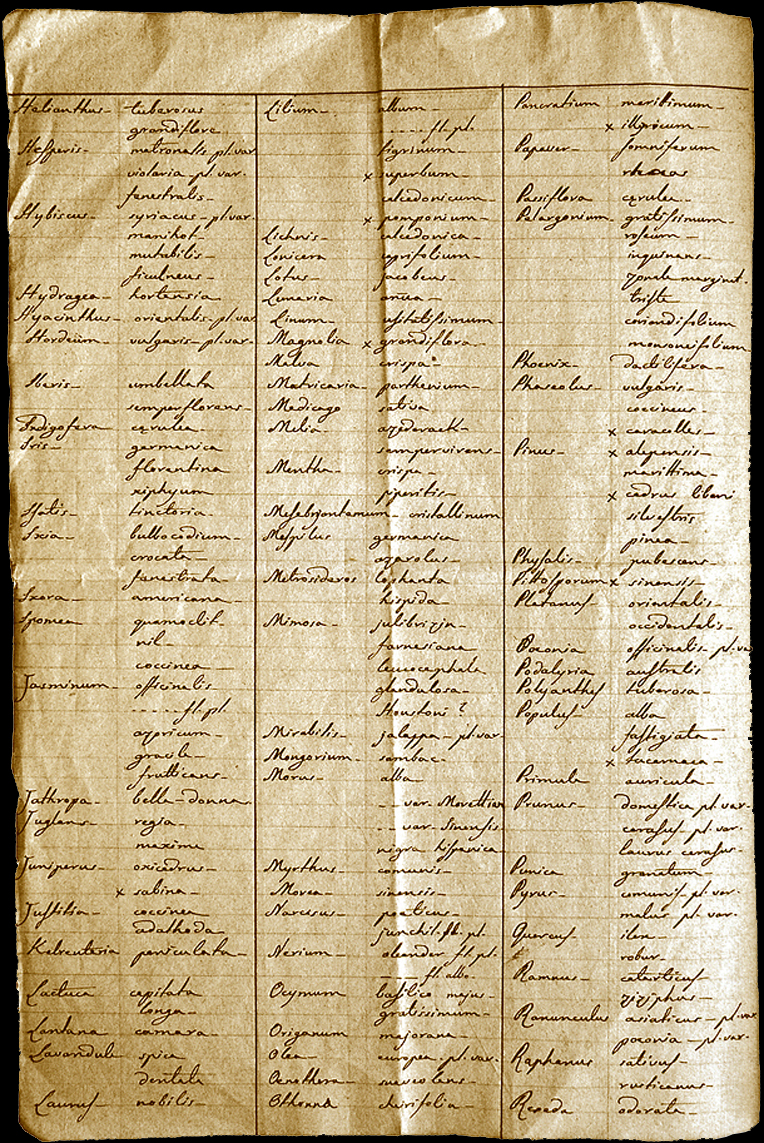 Helianthus - tuberosus
grandiflore
Hesperis - matronalis pl. var.
violaria - pl. var.
fenestralis -
Hybiscus - syriacus - pl. var.
manihot -
mutabilis -
ficulneus -
Hydragea - hortensia
Hyacinthus - orientalis - pl. var.
Hordeum - vulgaris - pl. var.
Iberis - umbellata
semperflorens -
Indigofera cęrulea -
Iris - germanica
florentina
xiphyum
Isatis - tinctoria -
Ixia - bulbocodium -
crocata -
fanestrata -
Ixora - americana -
Ipomea quamoclit -
nil -
coccinea
Jasminum - officinalis -
----- fl. pl.
azoricum -
gracile -
frutticans -
Jathropa - bella-donna
Juglans - regia -
maxima
Juniperus - oxicedrus -
x sabina -
Justitia - coccinea
adathoda -
Kelreuteria paniculata -
Lactuca capitata
longa -
Lantana camara -
Lavandula spica
dentata
Laurus nobilis -
Lilium - album -
---- fl. pl.
tigrinum -
x superbum -
calcedonicum -
x pomponium -
Lichnis - calcedonica -
Lonicera caprifolium -
Lotus - jacobeus -
Lunaria anua -
Linum - usitatissimum -
Magnolia x grandiflora -
Malva crispa
Matricaria - parthenium -
Medicago sativa
Melia - azedarack -
sempervirens -
Mentha - crispa -
piperitis -
Mesebrjantemum - cristallinum
Mespilus germanica
azarolus -
Metrosideros lophanta
hispida -
Mimosa - julibrizin -
farnesiana
leucocephala
glandulosa -
Houstoni ?
Mirabilis - jalappa - pl. var.
Mongorium - sambac -
Morus - alba -
- - var. Morettian
- - var. Sinensis
nigra hispanica
Myrthus - comunis -
Morea - sinensis -
Narcisus - poeticus -
junchil. fl. pl.
Nerium - oleander fl. pl.
---- fl. albo -
Ocymum basilico majus -
gratissimum -
Origanum majorana -
Olea - europea - pl. var.
Oenothera - suaveolens -
Othonna cheirifolia -
Pancratium maritimum -
x illiricum -
Papaver - somniferum
rheas
Passiflora cęrulea -
Pelargonium - gratissimum -
roseum -
inquinans -
zonale marginat.
triste
coriandifolium
monsoneifolium
Phoenix - dactilifera -
Phaseolus - vulgaris -
coccineus -
x caracolles -
Pinus - x alepensis -
marittima -
x cedrus libani
silvestris
pinea -
Physalis - pubescens
Pittosporum x sinensis -
Platanus - orientalis -
occidentalis -
Poeonia officinalis - pl. va
Podalyria australis
Polyanthes tuberosa -
Populus - alba
fastigiata -
x tacamaca -
Primula auricula -
Prunus - domestica pl. var.
cerasus - pl. var.
laurus cerasus -
Punica granatum -
Pyrus - comunis - pl. var.
malus pl. var.
Quercus - ilex -
robur -
Ramnus - catarticus
ziziphus -
Ranunculus asiaticus - pl. var.
poeonia - pl. var.
Raphanus sativus -
rusticanus -
Reseda odorata -